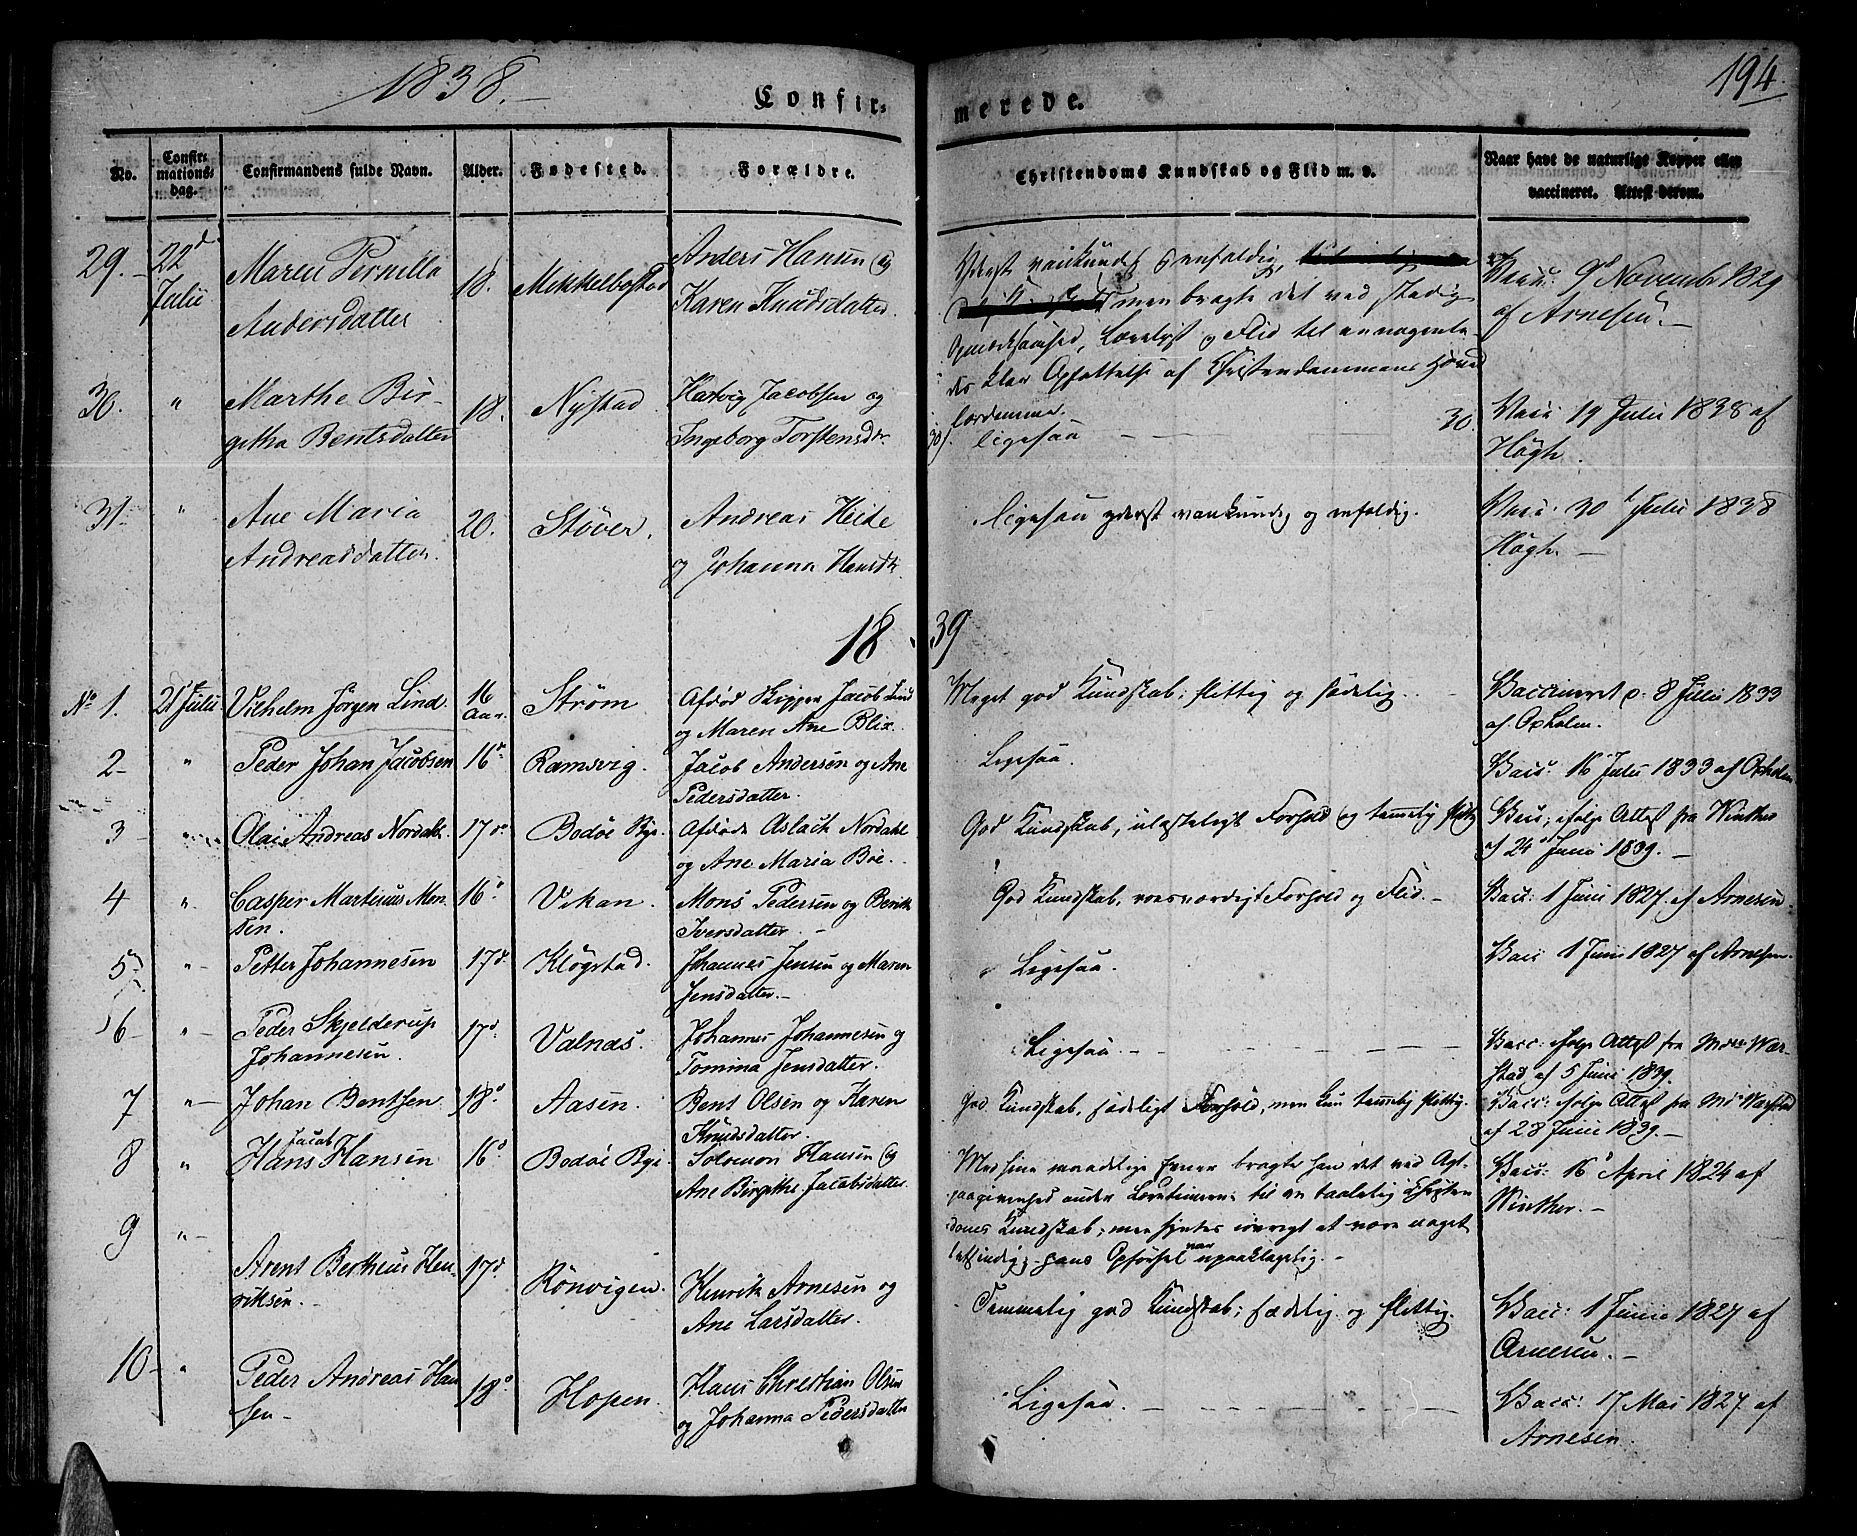 1838.
194.
Confir-
merede.
No.
Confir-
mations-
dag.
Confirmandens fulde Navn.
Alder.
Fødested.
Forældre.
Christendoms Kundskab og Flid m. v.
Naar havt de naturlige Kopper eller
vaccineret. Attest derom.
29. 22d Julii
Maren Pernilla
Andersdatter
18. Mikkelbostad
Anders Hansen og
Karen Knudsdatter.
Yderst vankundig, enfoldig,
men bragte det ved stadig
Opmærksomhed, Lærelyst og Flid til en nogenlun-
des klar Opfattelse af Christendommens Hoved
lærdomme.
Vacc: 9d Novembr 1829
af Arnesen.
30. "
Marthe Bir-
githa Bentsdatter
18. Nystad
Hartvig Jacobsen og
Ingeborg Torstensdtr.
30. ligesaa 30.
Vacc 19 Julii 1838 af
Høgh.
31. "
Ane Maria
Andreasdatter.
20. Støver.
Andreas Heide
og Johanna Hansdtr.
ligesaa yderst vankundig og enfoldig.
Vacc: 30d Julii 1838
Høgh.
1839
No 1. 21 Julii Vilhelm Jørgen Lind. 16 Aar. Strøm
Afdød Skipper Jacob Lind
og Maren Ane Blix.
Meget god Kundskab; flittig og sædelig.
Vaccineret d. 8 Julii 1833
af Oxholm.
2 " Peder Johan Jacobsen 16d Ramsvig.
Jacob Andersen og Ane
Pedersdatter.
Ligesaa.
Vacc: 16 Julii 1833 af Oxholm
3 " Olai Andreas Nordahl. 17do Bodøe Bye
Afdøde Aslach Nordahl
og Ane Maria Boe.
God Kundskab, ulasteligt Forhold og temmelig flittig
Vacc; ifølge Attest fra Winther
af 24 Junii 1839.
4 " Casper Martinus Mon-
sen.
16d Vikan.
Mons Pedersen og Berith
Iversdatter.
God Kundskab, roesværdigt Forhold og Flid.
Vacc: 1 Junii 1827 af Arnesen.
5 " Petter Johannesen 17d. Kløgstad.
Johannes Jensen og Maren
Jensdatter.
Ligesaa.
Vacc 1 Junii 1827 af Arnesen.
6 " Peder Skjelderup
Johannesen.
17d. Valnæs.
Johannes Johannesen og
Tomina Jensdatter.
Ligesaa.
Vacc: ifølge Attest fra War-
stad af 5 Junii 1839.
7 " Johan Bentsen. 18d Aasen.
Bent Olsen og Karen
Knudsdatter.
God Kundskab, sædeligt Forhold, men kun temmelig flittig.
Vacc: ifølge Attest fra Warstad
af 28 Junii 1839.
8 " Hans Jacob Hansen 16d Bodøe Bye
Solomon Hansen og
Ane Birgithe Jacobsdatter.
Med sine maadelige Evner bragte han det ved Agt-
paagivenhed under Læretimerne til en taalelig Christen
doms Kundskab; men syntes iøvrigt at være noget
letsindig; hans Opførsel var upaaklagelig.
Vacc: 16d April 1824 af
Winther.
9 " Arent Bertheus Hen-
riksen.
17d. Rønvigen.
Henrik Arnesen og
Ane Larsdatter.
Temmelig god Kundskab; sædelig og flittig.
Vacc: 1 Junii 1827 af
Arnesen.
10 " Peder Andreas Han
sen
18d Hopen.
Hans Christian Olsen
og Johanna Pedersdatter
Ligesaa.
Vacc: 17 Mai 1827 af
Arnesen.